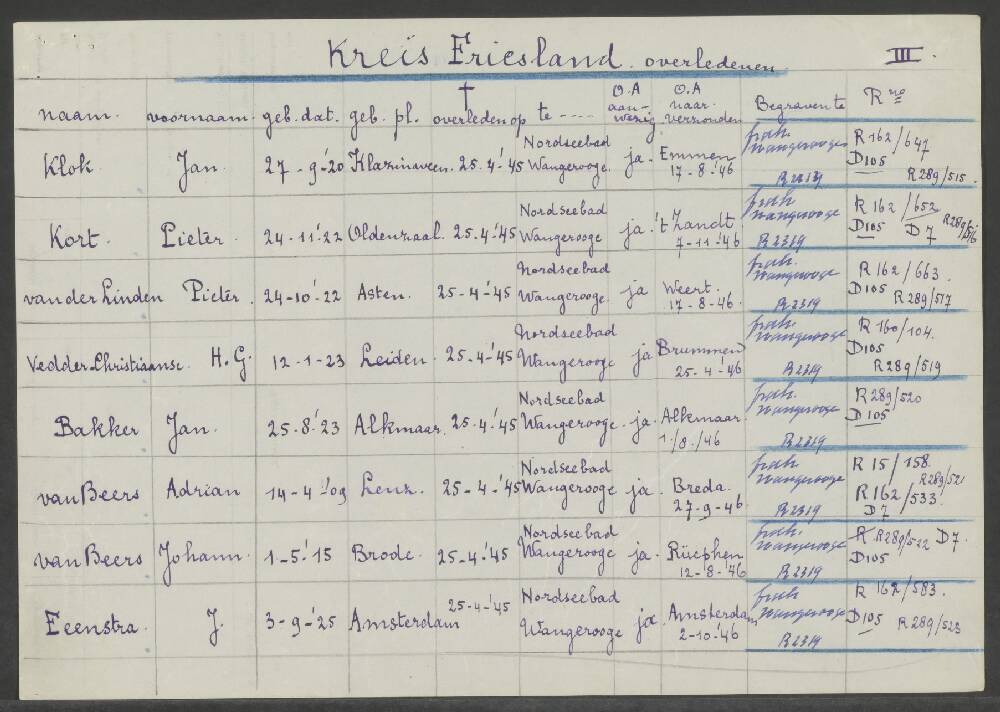 Kreis Friesland. overledenen III.
naam. voornaam. geb. dat. geb. pl. † overleden op te ---- O.A aan-wezig O.A naar verzonden Begraven te R no
Klok Jan. 27-9-'20 Klazinaveen. 25-4-'45 Nordseebad Wangerooge. ja. Emmen 17-8-'46 Wangerooge R2319 R162/647 D105 R289/515.
Kort. Pieter. 24-11-'22 Oldenzaal. 25-4-'45 Nordseebad Wangerooge ja. 't Zandt 7-11-'46 Wangerooge R2319 R162/652 D105 D7 R289/516
van der Linden Pieter. 24-10-'22 Asten. 25-4-'45 Nordseebad Wangerooge. ja Weert. 17-8-'46. Wangerooge R2319 R162/663. D105 R289/517
Vedder-Christiaanse. H.G. 12-1-'23 Leiden. 25-4-'45 Nordseebad Wangerooge ja Brummen 25-4-'46 Wangerooge R2319 R160/104. D105 R289/519
Bakker Jan. 25-8-'23 Alkmaar. 25-4-'45 Nordseebad Wangerooge. ja. Alkmaar. 1/8/'46 Wangerooge R2319 R289/520 D105
van Beers Adrian 14-4-'09 25-4-'45 Nordseebad Wangerooge ja. Breda. 27-9-'46 Wangerooge R2319 R15/158. R289/521 R162/533. D7
van Beers Johann. 1-5-'15 Brode. 25-4-'45 Nordseebad Wangerooge ja. Rücphen 12-8-'46 Wangerooge R2319 R289/522 D7. D105
Eenstra. J. 3-9-'25 Amsterdam 25-4-'45 Nordseebad Wangerooge ja. Amsterdam 2-10-'46 Wangerooge R2319 R162/583. D105 R289/523